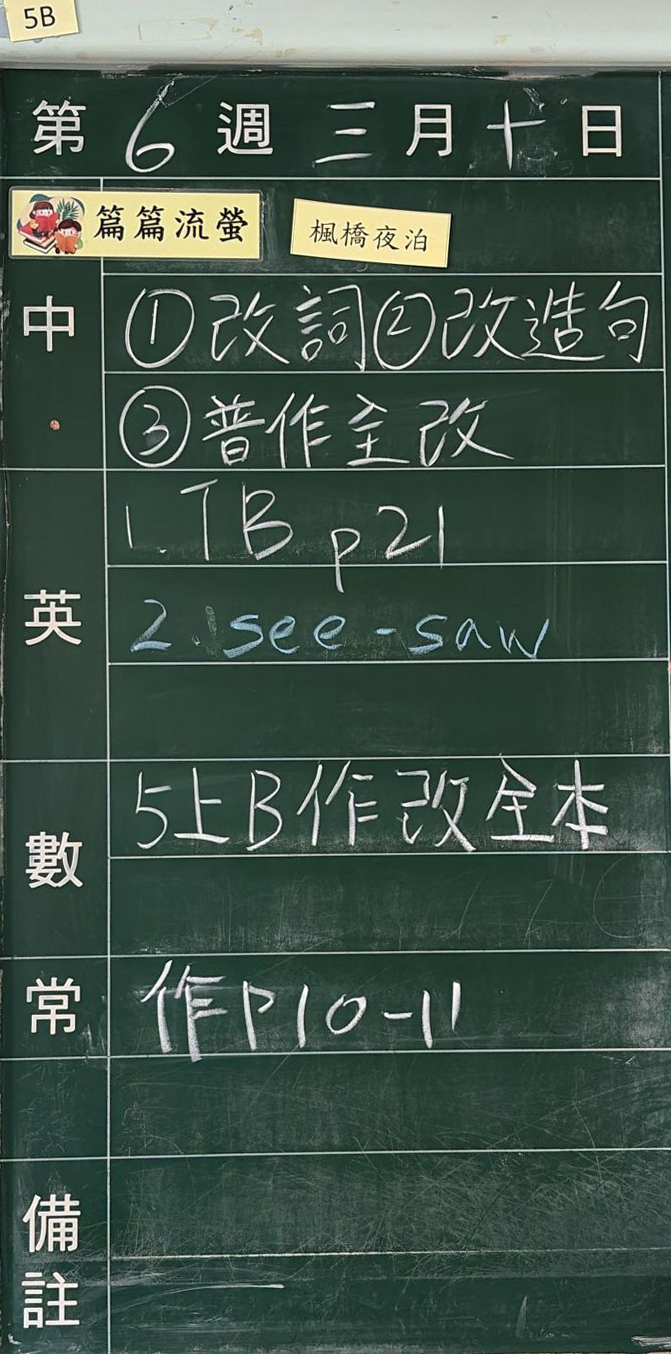 5B
第 6 週 三 月 十 日
篇篇流螢 楓橋夜泊
中 ①改詞②改造句
③普作全改
英 1. TB p21
2. see-saw
數 5上B作改全本
常 作P10-11
備註